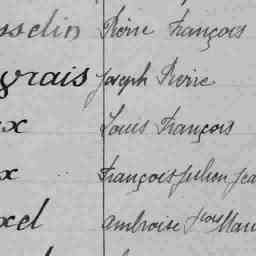 sselin Pierre François
grais Joseph Pierre
x Louis François
x François Julien Jea
xel Ambroise Fçois Mari